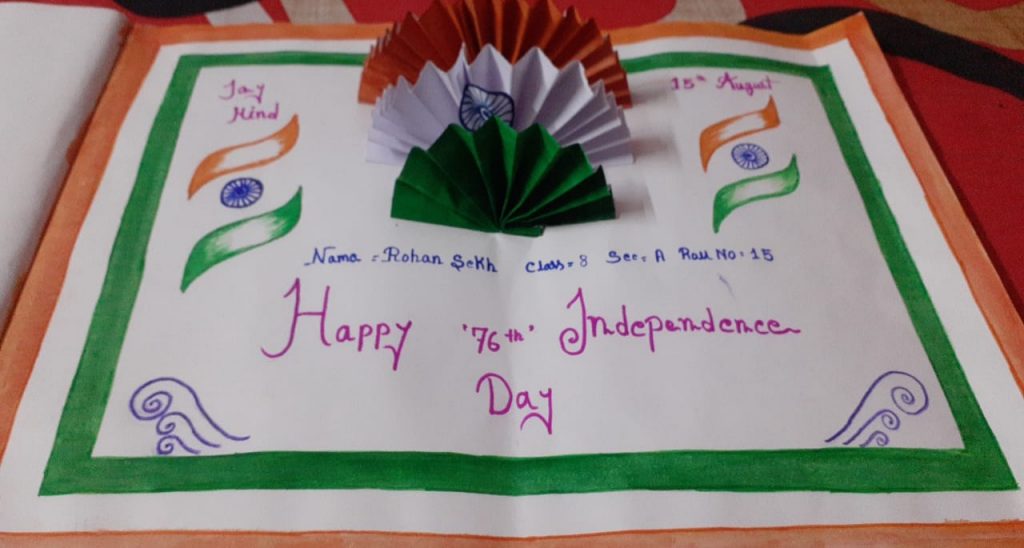 Jay
Hind
15th August
Name = Rohan Sekh Class = 8 Sec = A Roll No = 15
Happy '76th' Independence
Day